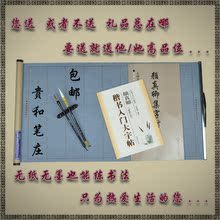 您送 或者不送 礼品总在哪
要送就送他/她高品位...
包邮
贵和笔座
楷书入门大字帖
颜真卿集字
无纸无墨也能练书法
只为热爱生活的您...